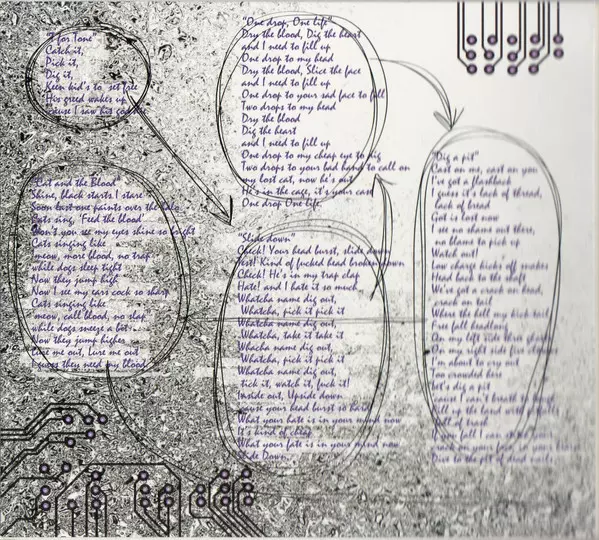 "T for Tone"
Catch it,
Pick it,
Dig it,
Keen kid's to set free
His greed wakes up
'Cause I saw his
"One drop, One life"
Dry the blood, Dig the heart
and I need to fill up
One drop to my head
Dry the blood, Slice the face
and I need to fill up
One drop to your sad face to fall
Two drops to my head
Dry the blood
Dig the heart
and I need to fill up
One drop to my cheap eye to dig
Two drops to your bad hand to call on
my lost cat, now he's out
He's in the cage, it's your cast
One drop One life.
"Cat and the Blood"
Shine, black starts I stare
Soon last one paints over the halo
Cats sing, 'Feed the blood'
Don't you see my eyes shine so bright
Cats singing like
meow, more blood, no trap
while dogs sleep tight
Now they jump high
Now I see my ears cock so sharp
Cats singing like
meow, call blood, no slap
while dogs sneeze a bit
Now they jump higher
Lure me out, Lure me out
I guess they need my blood
"Slide down"
Check! Your head burst, slide down
Jest! Kind of fucked head broken down
Check! He's in my trap clap
Hate! and I hate it so much
Whatcha name dig out,
Whatcha, pick it pick it
Whatcha name dig out,
Whatcha, take it take it
Whacha name dig out,
Whatcha, pick it pick it
Whatcha name dig out,
tick it, watch it, fuck it!
Inside out, Upside down
'cause your head burst so hard
What your hate is in your mind now
It's kind of cheap
What your fate is in your mind now
Slide Down.
"Dig a pit"
Cast on me, cast on you
I've got a flashback
I guess it's lack of thread,
lack of bread
Got is lost now
I see no shams out there,
no blame to pick up
Watch out!
Low charge kicks off quakes
Head back to the shaft
We've got a crack on head,
crack on tail
Where the hell my thick tail
Free fall headlong
On my left side three
On my right side five
I'm about to cry out
Too crowded here
Let's dig a pit
'cause I can't breath
Fill up the hand with
full of trash
you fall I can
crack on your face, in your
Dive to the pit of dead